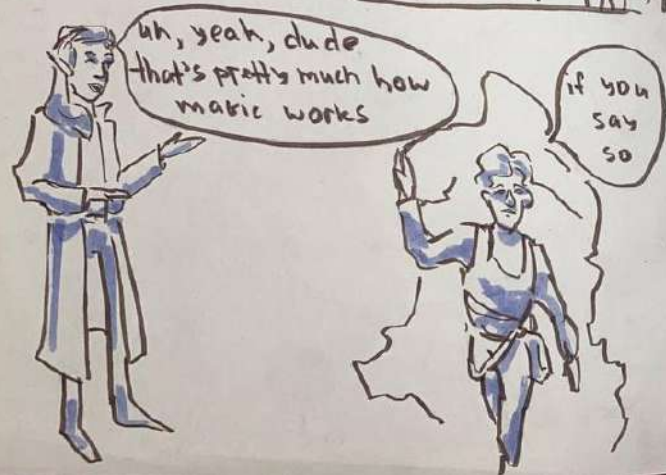 uh, yeah, dude
that's pretty much how
magic works
if you
say
so